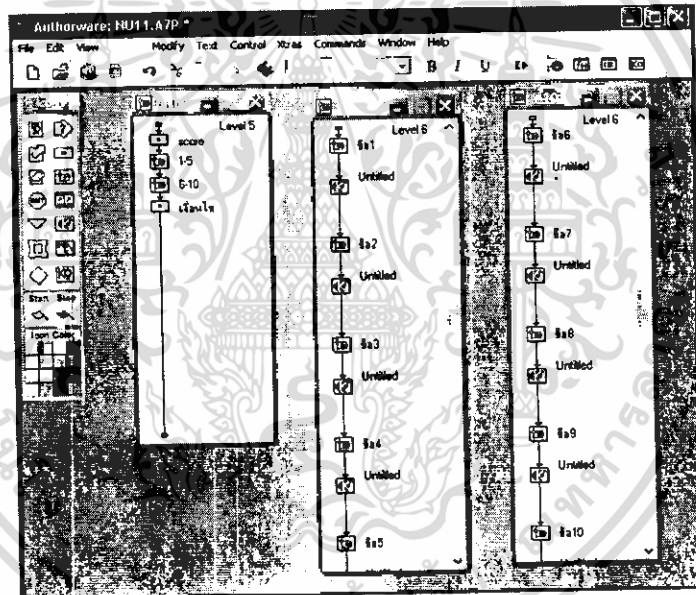 Authorware: NU11.A7P *
File Edit View Modify Text Control Xtras Commands Window Help
B I U
Level 5
score
1-5
6-10
เงื่อนไข
Level 6
ข้อ1
Untitled
ข้อ2
Untitled
ข้อ3
Untitled
ข้อ4
Untitled
ข้อ5
Level 6
ข้อ6
Untitled
ข้อ7
Untitled
ข้อ8
Untitled
ข้อ9
Untitled
ข้อ10
Start Stop
Icon Color